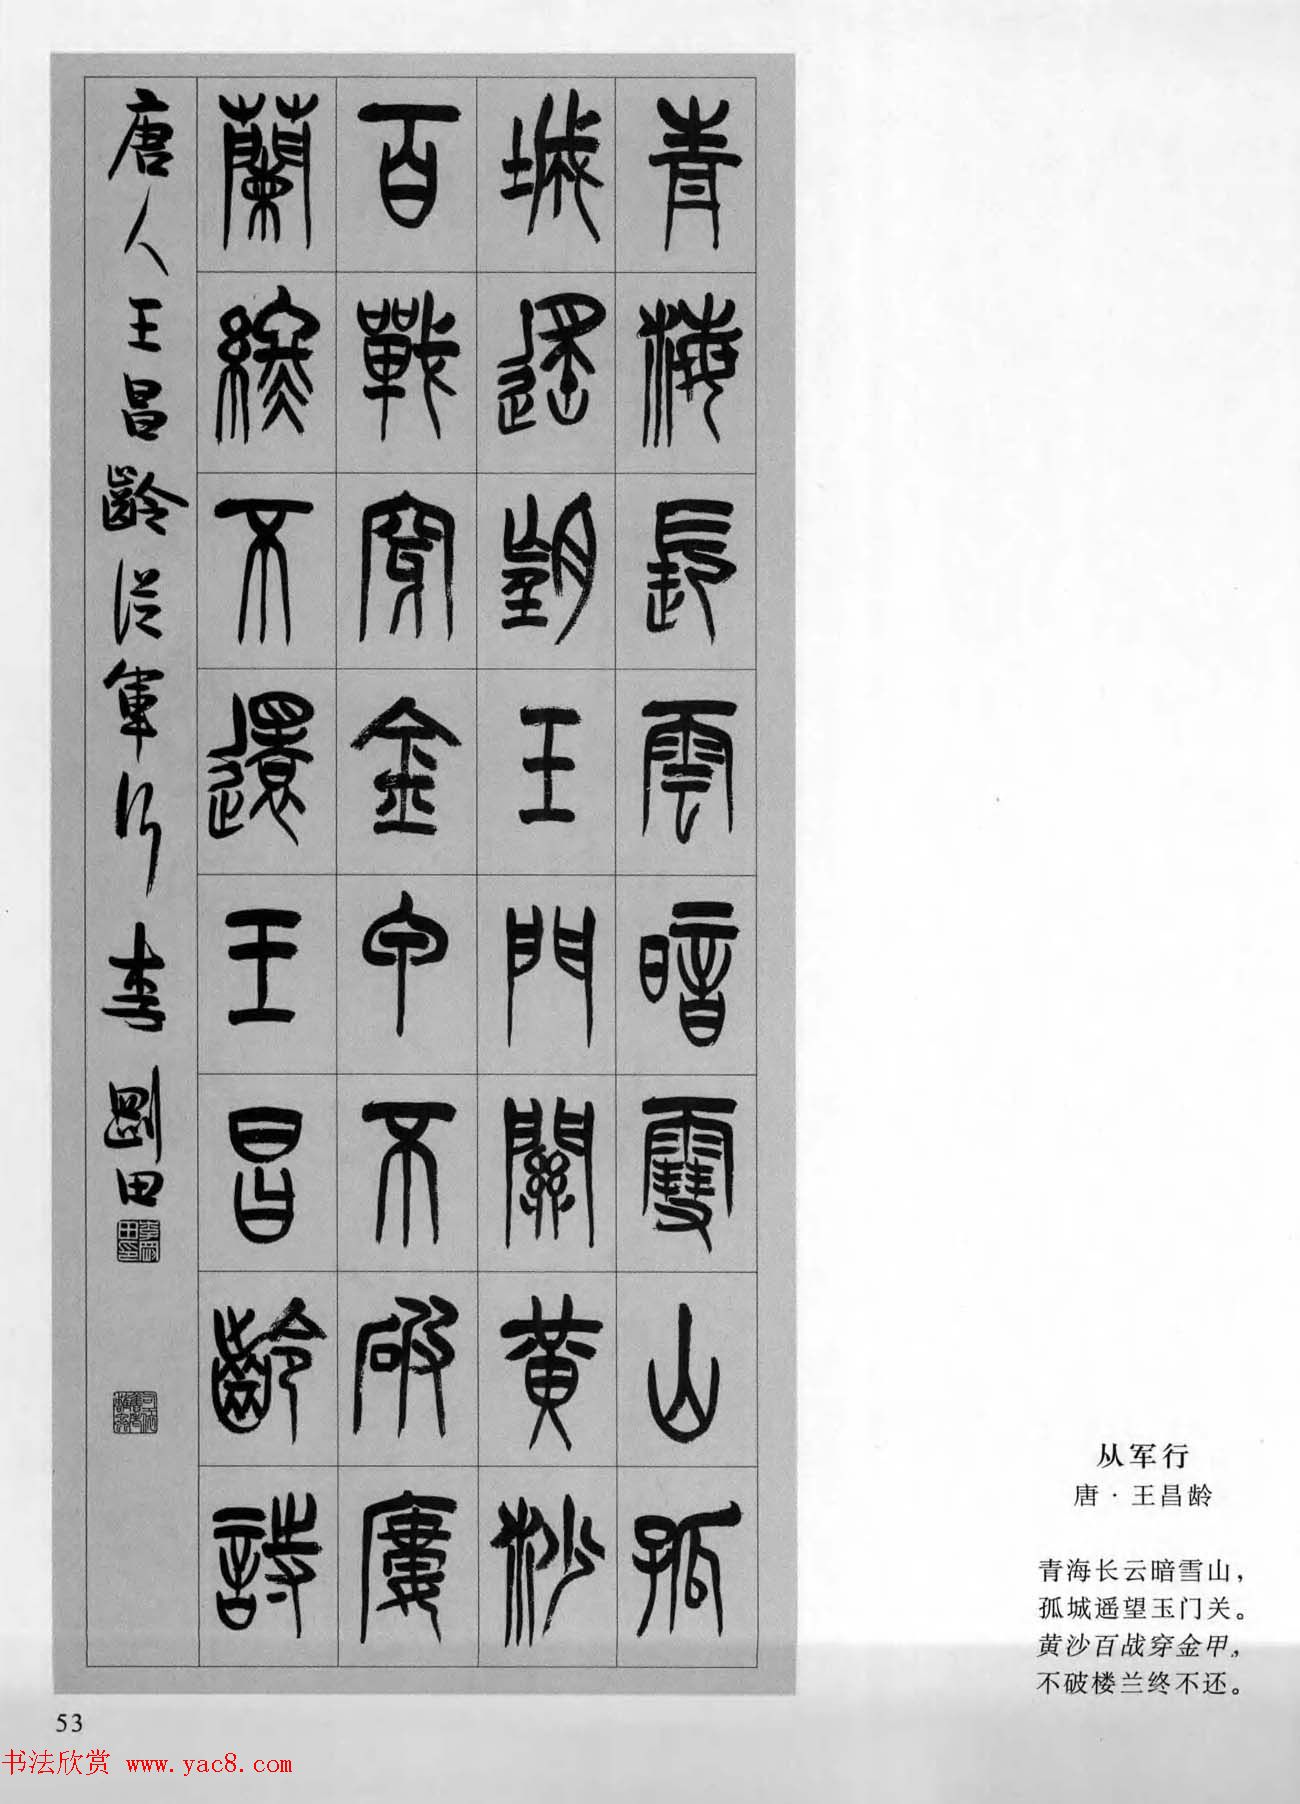 青海長雲暗雪山孤
城遥望玉門關黄沙
百戰穿金甲不破廔
蘭終不還王昌齡詩
唐人王昌齡從軍行 李剛田
从军行
唐·王昌龄
青海长云暗雪山，
孤城遥望玉门关。
黄沙百战穿金甲，
不破楼兰终不还。
53
书法欣赏 www.yac8.com